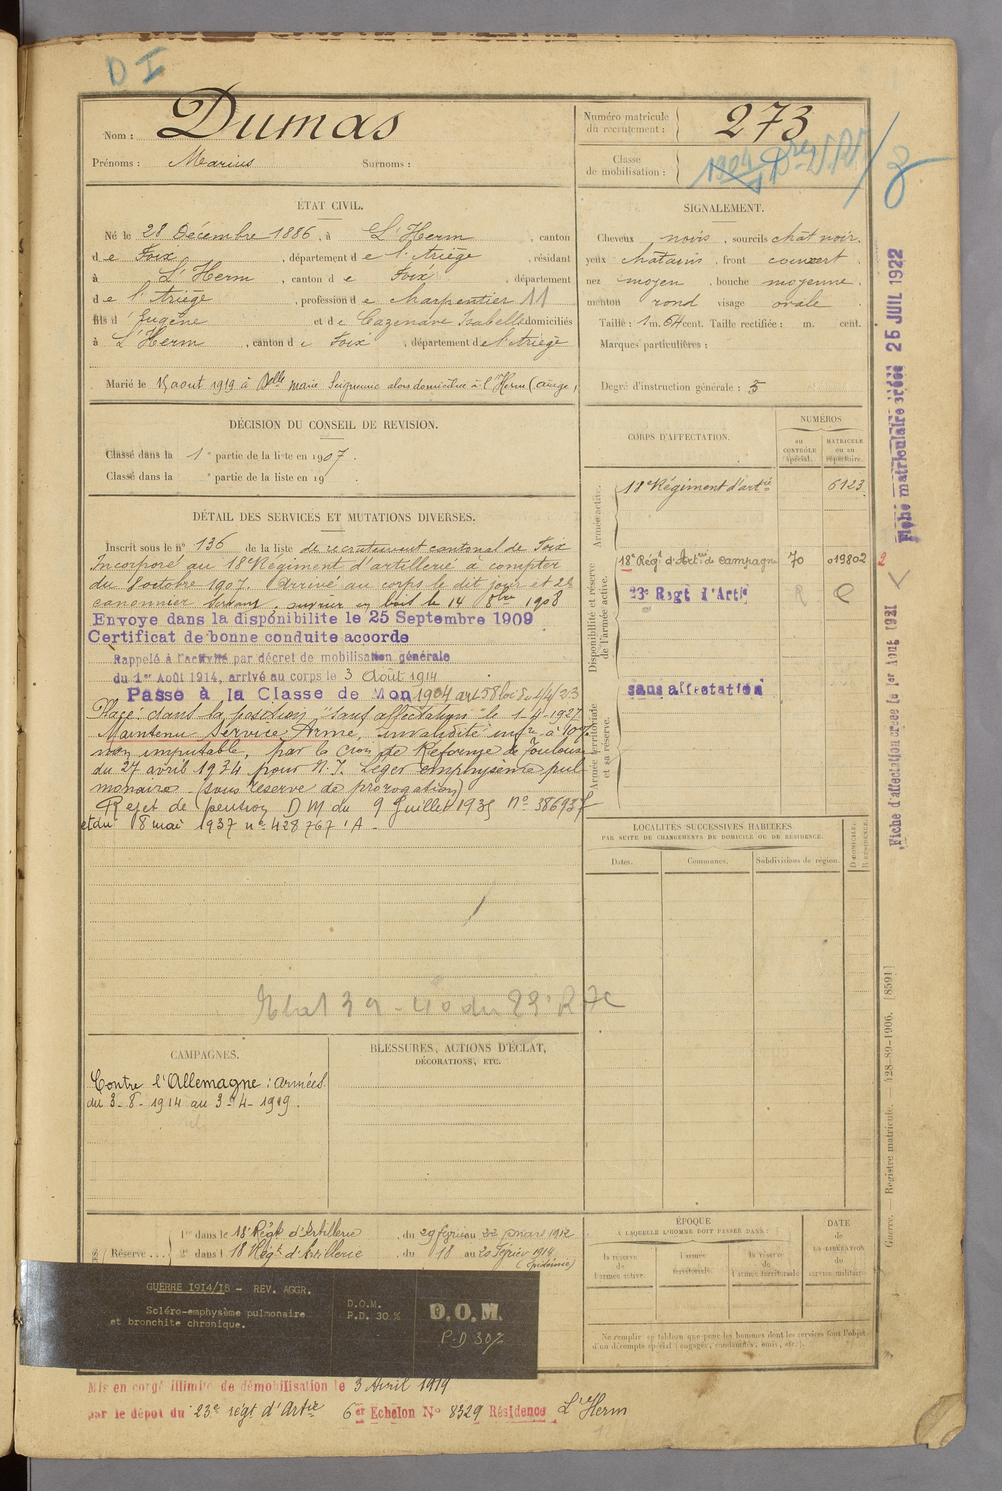 D I
Nom : Dumas
Prénoms : Marius Surnoms :
Numéro matricule du recrutement : 273
Classe de mobilisation : 1904
ÉTAT CIVIL.
Né le 28 Décembre 1886, à L'Herm, canton
de Foix, département de l'Ariège, résidant
à L'Herm, canton de Foix, département
de l'Ariège, profession de charpentier 11
fils d'Eugène et de Cazenave Isabelle domiciliés
à L'Herm, canton de Foix, département de l'Ariège
Marié le 15 aout 1919 à Delle marie alors domiciliée à l'Herm (ariège)
SIGNALEMENT.
Cheveux noirs, sourcils chât noir.
yeux châtains, front couvert.
nez moyen, bouche moyenne.
menton rond visage ovale.
Taille : 1 m. 64 cent. Taille rectifiée : m. cent.
Marques particulières :
Degré d'instruction générale : 3
DÉCISION DU CONSEIL DE REVISION.
Classé dans la 1e partie de la liste en 1907.
Classé dans la partie de la liste en 19 .
DÉTAIL DES SERVICES ET MUTATIONS DIVERSES.
Inscrit sous le n° 136 de la liste de recrutement cantonal de Foix
Incorporé au 18e Régiment d'artillerie à compter
du 8 octobre 1907. Arrivé au corps le dit jour et 2e
canonnier servant, ouvrier en bois le 14 8bre 1908
Envoye dans la disponibilite le 25 Septembre 1909
Certificat de bonne conduite accorde
Rappelé à l'activité par décret de mobilisation générale
du 1er Août 1914, arrivé au corps le 3 Août 1914
Passé à la Classe de Mon 1904 art 58 loi du 1/4/23
Placé dans la position "sans affectation" le 1-4-1927
Maintenu Service Armé, invalidité infre à 10%
non imputable, par la Cion de Réforme de Toulouse
du 27 avril 1934 pour N.I. Léger emphysème pul
monaire (sous réserve de prorogation)
Rejet de pension D M du 9 Juillet 1935 N° 386937
et du 8 mai 1937 n° 428767 'A -
39-40 du 23e R
CORPS D'AFFECTATION.
NUMÉROS
AU CONTRÔLE spécial.
MATRICULE ou au répertoire.
Armée active.
18e Régiment d'artie 6123.
Disponibilité et réserve de l'armée active.
18e Régt d'Artie de campagne 70 019802 2
23e Regt d'Artie R
sans affectation
Armée territoriale et sa réserve.
LOCALITÉS SUCCESSIVES HABITÉES
PAR SUITE DE CHANGEMENTS DE DOMICILE OU DE RÉSIDENCE.
Dates. Communes. Subdivisions de région. D DOMICILE. R RÉSIDENCE.
CAMPAGNES.
Contre l'Allemagne : armées.
du 3-8-1914 au 3-4-1919.
BLESSURES, ACTIONS D'ÉCLAT,
DÉCORATIONS, ETC.
Réserve... 1re dans le 18e Régt d'Artillerie, du 29 février au 22 mars 1912
2e dans l 18e Régt d'Artillerie, du 18 au
(épidémie)
ÉPOQUE
À LAQUELLE L'HOMME DOIT PASSER DANS :
la réserve de l'armée active. l'armée territoriale. la réserve de l'armée territoriale.
DATE de LA LIBÉRATION du service militaire.
Ne remplir ce tableau que pour les hommes dont les services font l'objet
d'un décompte spécial (engagés, omis, etc.).
GUERRE 1914/18 - REV. AGGR.
Scléro-emphysème pulmonaire
et bronchite chronique.
D.O.M.
P.D. 30 %
D.O.M.
P.D 30%
Mis en congé illimité de démobilisation le 3 Avril 1919
par le dépot du 23e régt d'Artie 6er Echelon N° 8329 Résidence L'Herm
Fiche matriculaire créée 25 JUIL 1922
Fiche d'affectation créée le 1er Août 1921
Guerre. — Registre matricule. — 428-89-1906. [8591]